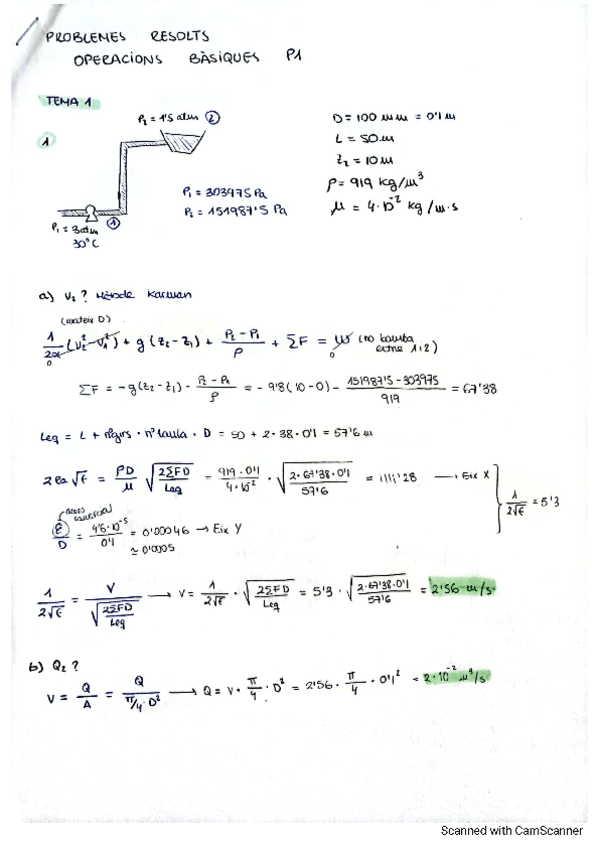 PROBLEMES RESOLTS
OPERACIONS BÀSIQUES P1
TEMA 1
1
P₂ = 1'5 atm ②
P₁ = 3 atm ①
30°C
P₁ = 303975 Pa
P₂ = 151987'5 Pa
D = 100 mm = 0'1 m
L = 50 m
Z₂ = 10 m
ρ = 919 kg/m³
μ = 4·10⁻² kg/m·s
a) V₂? Mètode Karman
(mateix D)
1/2α (V₂² - V₁²) + g (Z₂ - Z₁) + (P₂ - P₁)/ρ + ΣF = W (no bomba entre 1 i 2)
0 0
ΣF = -g(Z₂ - Z₁) - (P₂ - P₁)/ρ = -9'8 (10 - 0) - (151987'5 - 303975)/919 = 67'38
Leq = L + nºgirs · nºtaula · D = 50 + 2 · 38 · 0'1 = 57'6 m
2Re√f = ρD/μ √(2ΣFD/Leq) = 919 · 0'1/4·10⁻² · √(2 · 67'38 · 0'1/57'6) = 1111'28 → Eix X
1/2√f = 5'3
acer comercial
ε/D = 4'6·10⁻⁵/0'1 = 0'00046 → Eix Y
≃ 0'0005
1/2√f = V/√(2ΣFD/Leq) → V = 1/2√f · √(2ΣFD/Leq) = 5'3 · √(2·67'38·0'1/57'6) = 2'56 m/s
b) Q₂?
V = Q/A = Q/(π/4·D²) → Q = V · π/4 · D² = 2'56 · π/4 · 0'1² = 2·10⁻² m³/s
Scanned with CamScanner